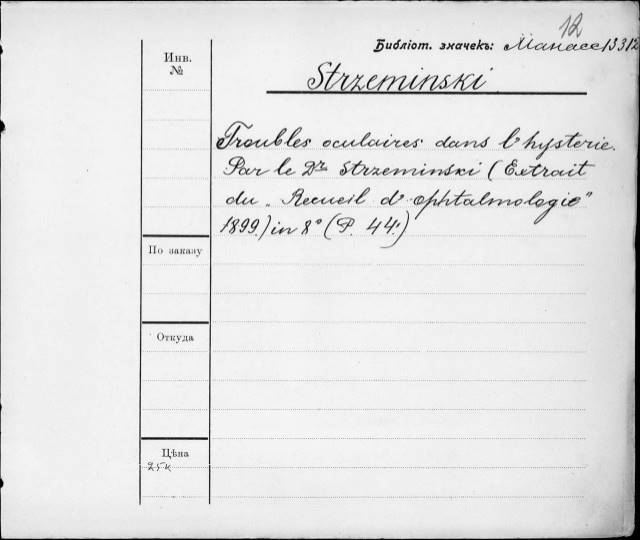 12
Библіот. значекъ: Манасе 13312
Инв.
№
Strzeminski
Troubles oculaires dans l'hysterie.
Par le Dr Strzeminski (Extrait
du „Recueil d'ophtalmologie"
1899.) in 8° (P. 44.)
По заказу
Откуда
Цѣна
25к